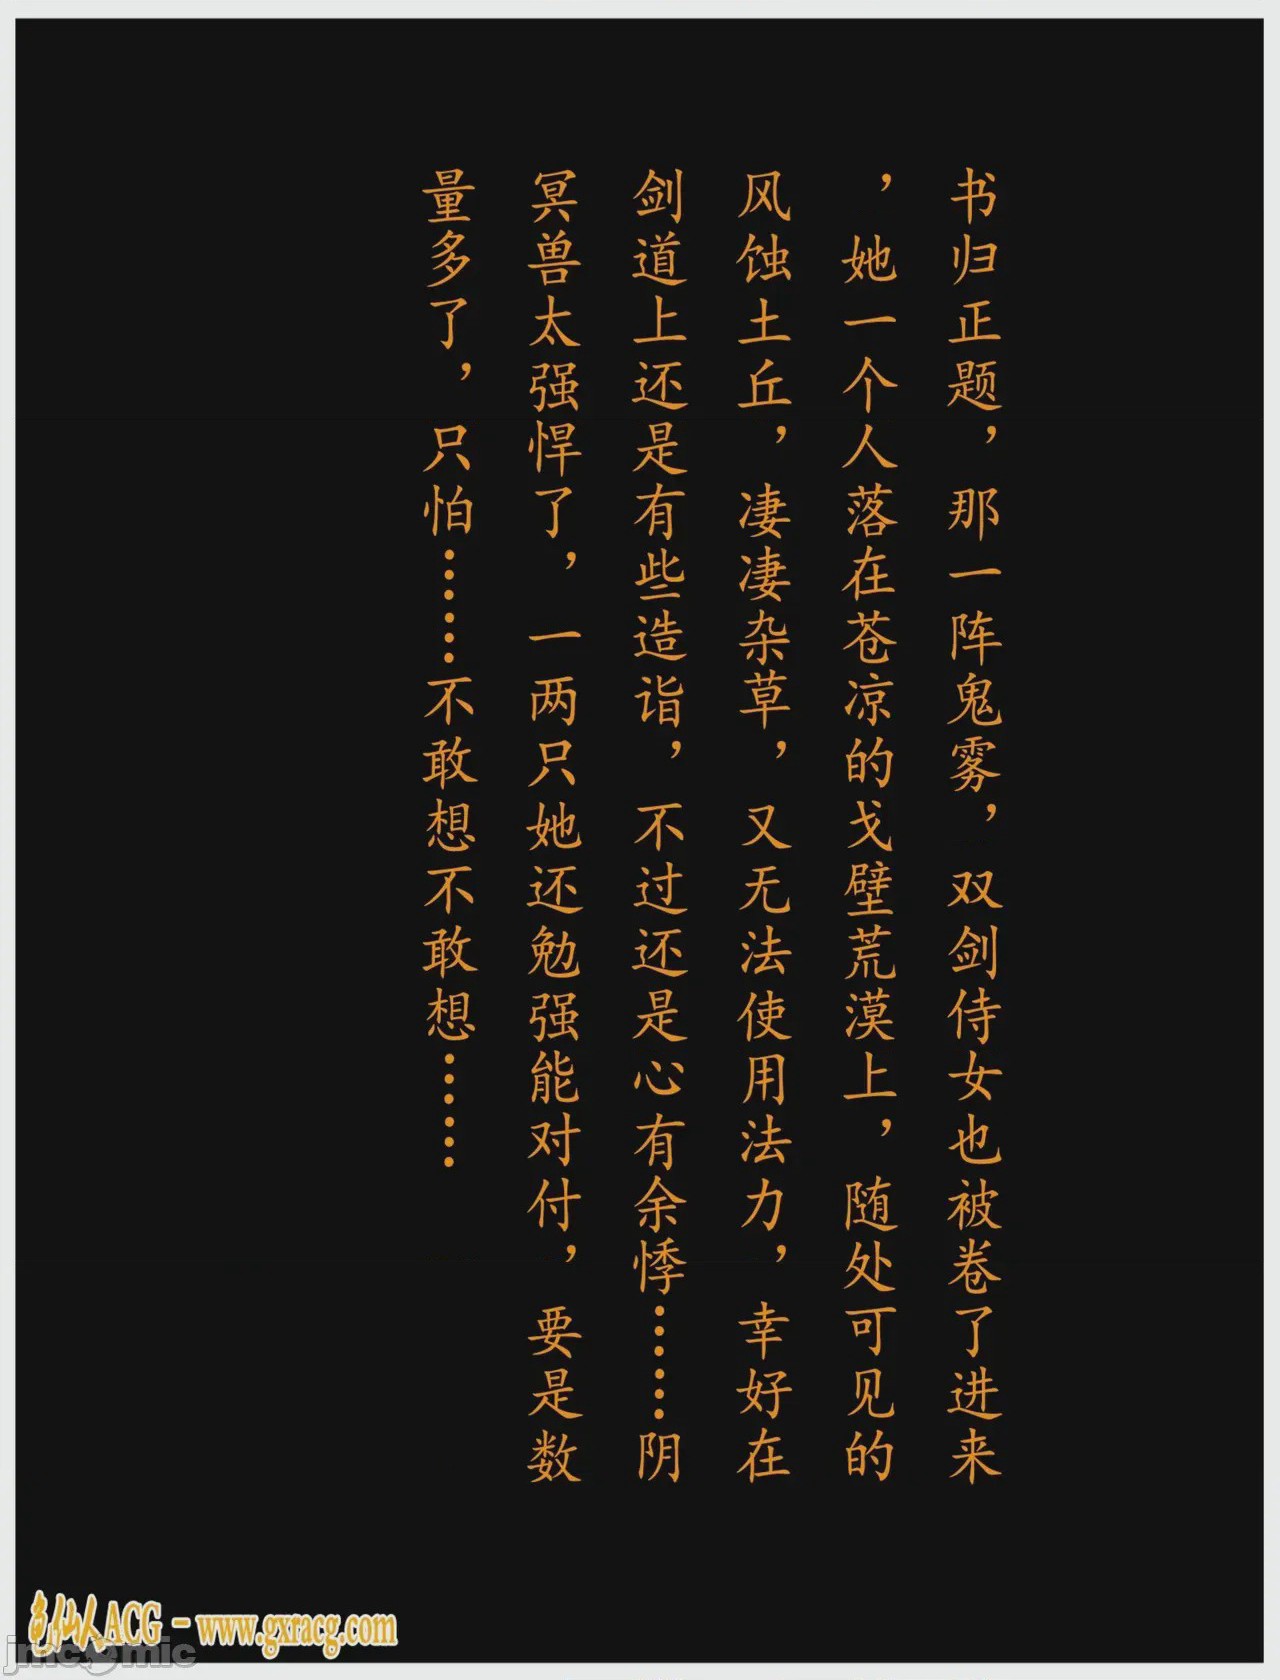 书归正题，那一阵鬼雾，双剑侍女也被卷了进来
，她一个人落在苍凉的戈壁荒漠上，随处可见的
风蚀土丘，凄凄杂草，又无法使用法力，幸好在
剑道上还是有些造诣，不过还是心有余悸……阴
冥兽太强悍了，一两只她还勉强能对付，要是数
量多了，只怕……不敢想不敢想……
鬼仙人ACG - www.gxracg.com
jmcomic